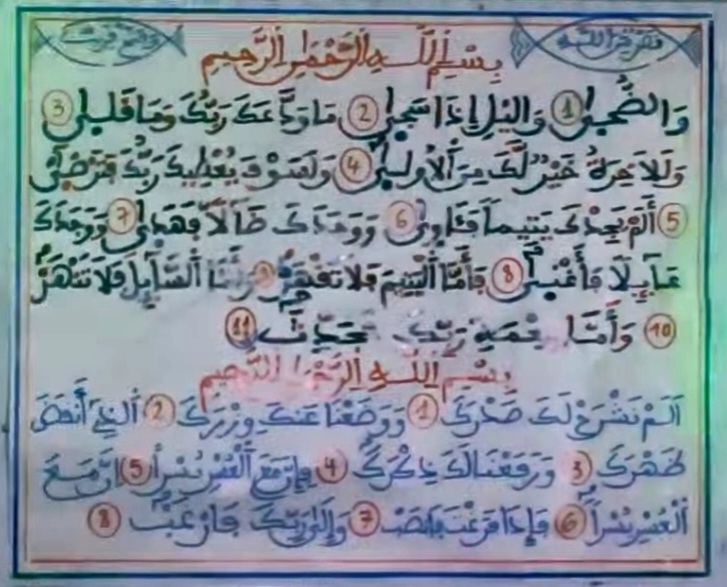 نصر من الله
وفتح قريب
بِسْمِ اللَّهِ الرَّحْمَٰنِ الرَّحِيمِ
وَالضُّحَىٰ 1 وَالَّيْلِ إِذَا سَجَىٰ 2 مَا وَدَّعَكَ رَبُّكَ وَمَا قَلَىٰ 3
وَلَلَاخِرَةُ خَيْرٌ لَّكَ مِنَ اَلُاولَىٰ 4 وَلَسَوْفَ يُعْطِيكَ رَبُّكَ فَتَرْضَىٰ
5 أَلَمْ يَجِدْكَ يَتِيماً فَـَٔاوَىٰ 6 وَوَجَدَكَ ضَآلّاً فَهَدَىٰ 7 وَوَجَدَكَ
عَآئِلاً فَأَغْنَىٰ 8 فَأَمَّا اَلْيَتِيمَ فَلَا تَقْهَرْ 9 وَأَمَّا اَلسَّآئِلَ فَلَا تَنْهَرْ
10 وَأَمَّا بِنِعْمَةِ رَبِّكَ فَحَدِّثْ 11
بِسْمِ اللَّهِ الرَّحْمَٰنِ الرَّحِيمِ
أَلَمْ نَشْرَحْ لَكَ صَدْرَكَ 1 وَوَضَعْنَا عَنكَ وِزْرَكَ 2 اَلَّذِي أَنقَضَ
ظَهْرَكَ 3 وَرَفَعْنَا لَكَ ذِكْرَكَ 4 فَإِنَّ مَعَ اَلْعُسْرِ يُسْراً 5 إِنَّ مَعَ
اَلْعُسْرِ يُسْراً 6 فَإِذَا فَرَغْتَ فَانصَبْ 7 وَإِلَىٰ رَبِّكَ فَارْغَبْ 8